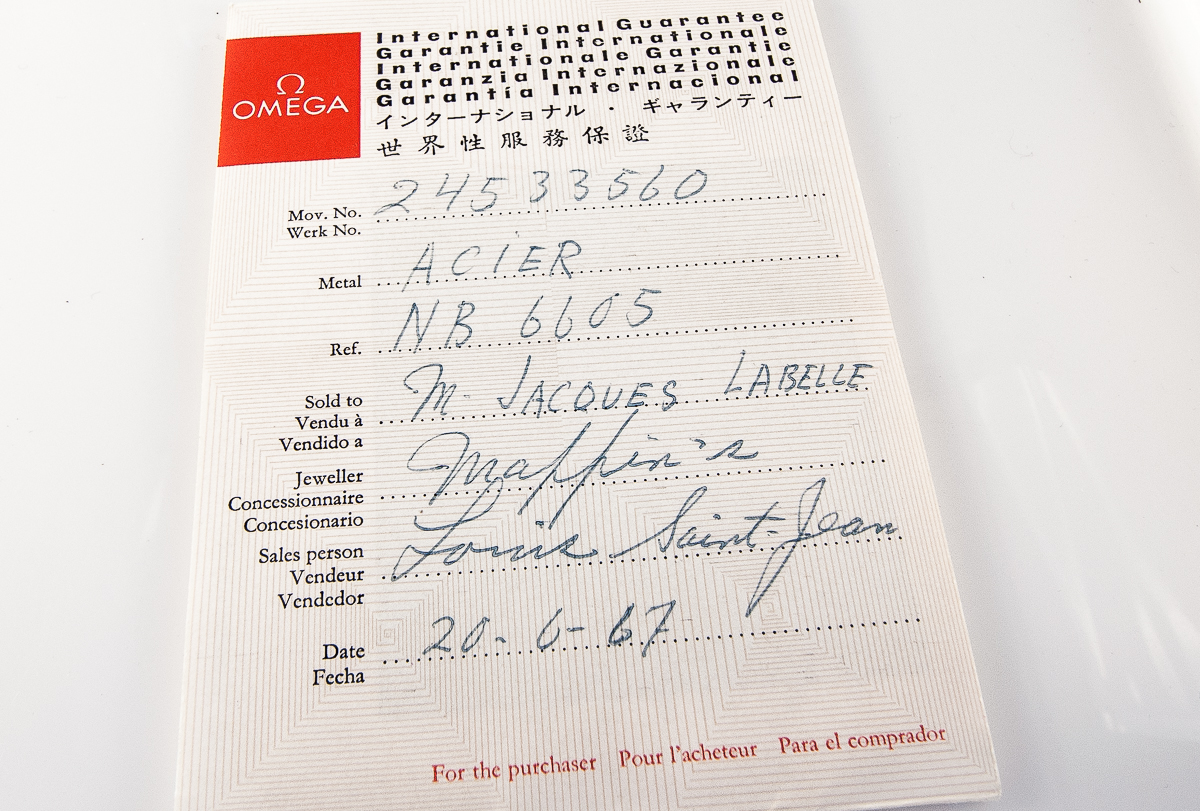 Ω
OMEGA
International Guarantee
Garantie Internationale
Internationale Garantie
Garanzia Internazionale
Garantía Internacional
インターナショナル・ギャランティー
世界性服務保證
Mov. No. 24533560
Werk No.
Metal ACIER
Ref. NB 6605
Sold to M. JACQUES LABELLE
Vendu à
Vendido a
Jeweller Mappin's
Concessionnaire
Concesionario
Sales person Louis Saint-Jean
Vendeur
Vendedor
Date 20-6-67
Fecha
For the purchaser Pour l'acheteur Para el comprador